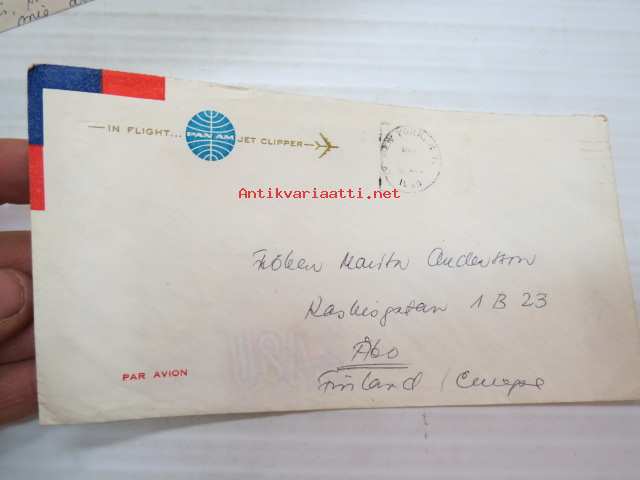 IN FLIGHT... PAN AM JET CLIPPER
NEW YORK, N.Y.
Antikvariaatti.net
Fröken Marita Andersson
Kaskisgatan 1 B 23
Åbo
Finland / Europe
PAR AVION